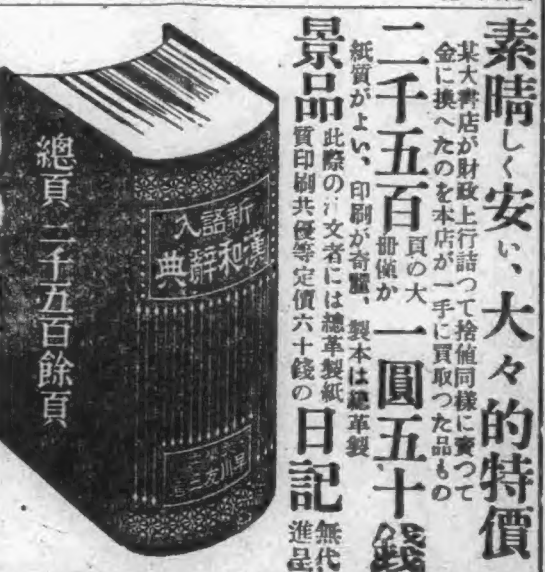 素晴しく安い、大々的特價
某大書店が財政上行詰つて捨値同様に賣つて
金に換へたのを本店が一手に買取つた品もの
二千五百頁の大冊僅か一圓五十錢
紙質がよい、印刷が奇麗、製本は總革製、
景品此際の注文者には總革製紙
質印刷共優等定價六十錢の日記無代
進呈
新語入
漢和辭典
早川友三
總頁二千五百餘頁